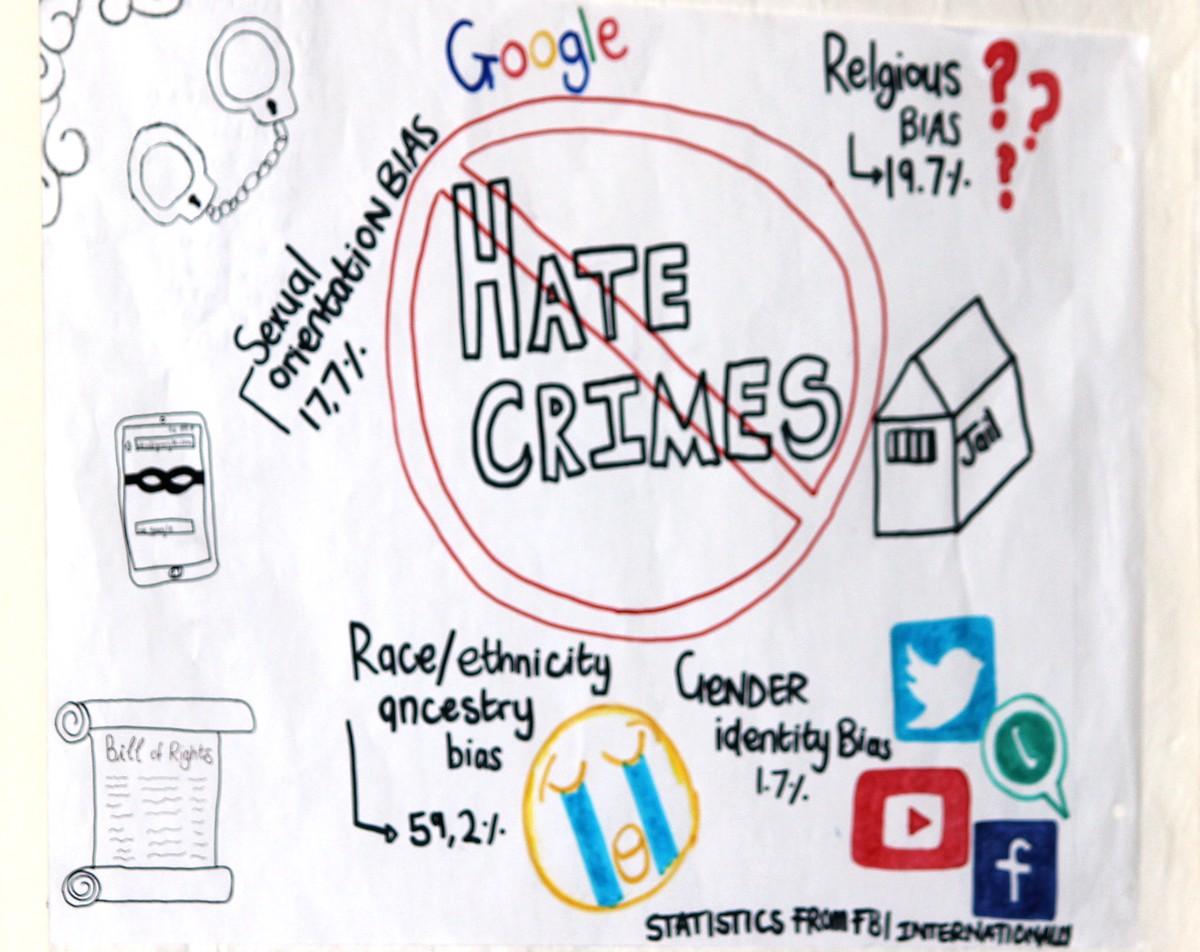 Google
Relgious
BIAS
19.7%
Sexual
orientation BIAS
17,7%
HATE
CRIMES
Jail
Race/ethnicity
ancestry
bias
59,2%
GENDER
identity Bias
1.7%
Bill of Rights
f
STATISTICS FROM FBI INTERNATIONAL